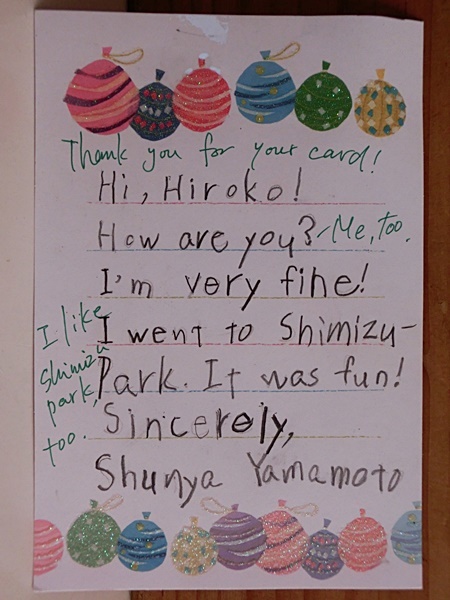 Thank you for your card!
Hi, Hiroko!
How are you? Me, too.
I'm very fine!
I went to Shimizu-
Park. It was fun!
Sincerely,
Shunya Yamamoto
I like
Shimizu
park,
too.